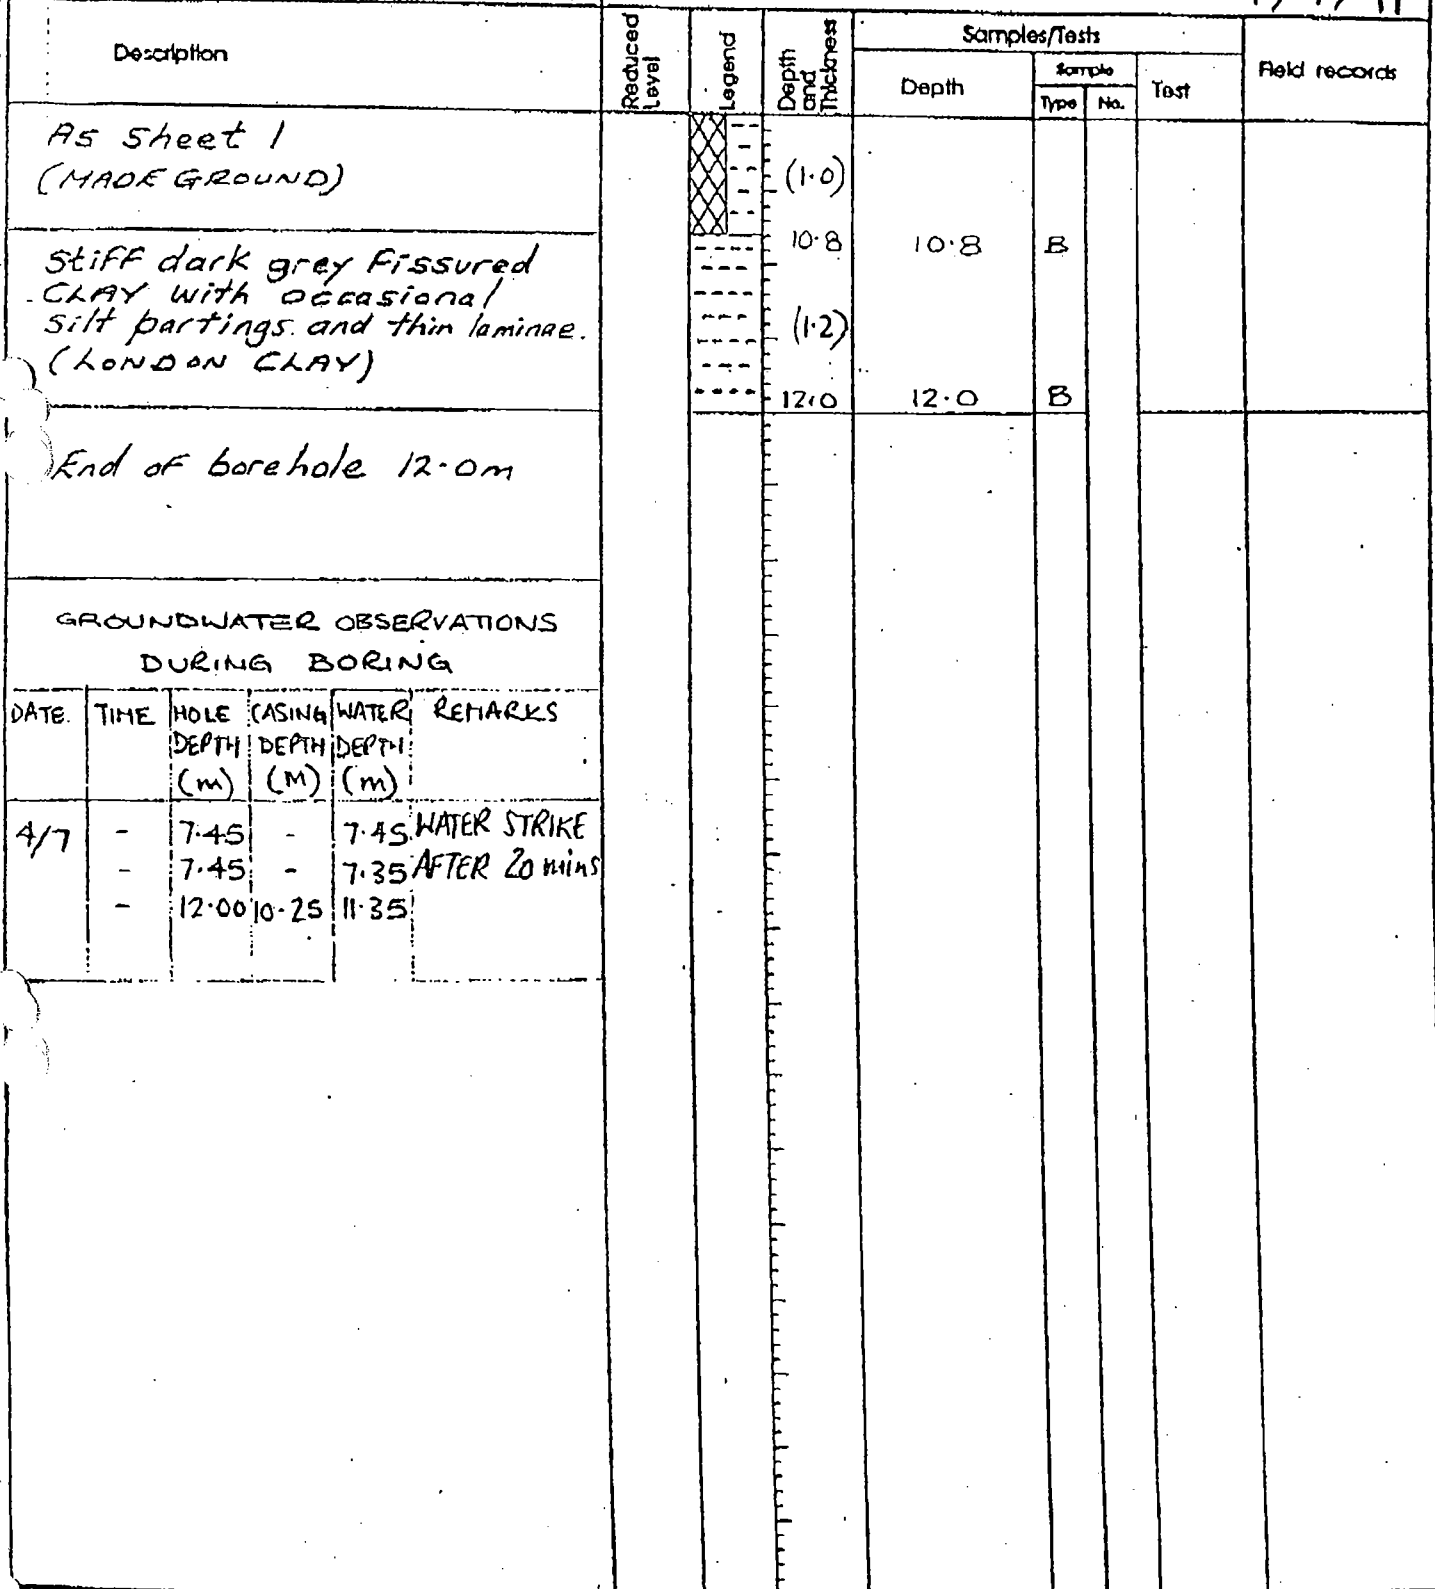 Description
Reduced Level
Legend
Depth and Thickness
Samples/Tests
Depth
Sample
Type
No.
Test
Field records
As Sheet 1
(MADE GROUND)
(1.0)
10.8 10.8 B
Stiff dark grey Fissured
CLAY with occasional
Silt partings and thin laminae.
(LONDON CLAY)
(1.2)
12.0 12.0 B
End of borehole 12.0m
GROUNDWATER OBSERVATIONS
DURING BORING
DATE. TIME HOLE DEPTH (m) CASING DEPTH (M) WATER DEPTH (m) REMARKS
4/7 - 7.45 - 7.45 WATER STRIKE
- 7.45 - 7.35 AFTER 20 mins
- 12.00 10.25 11.35